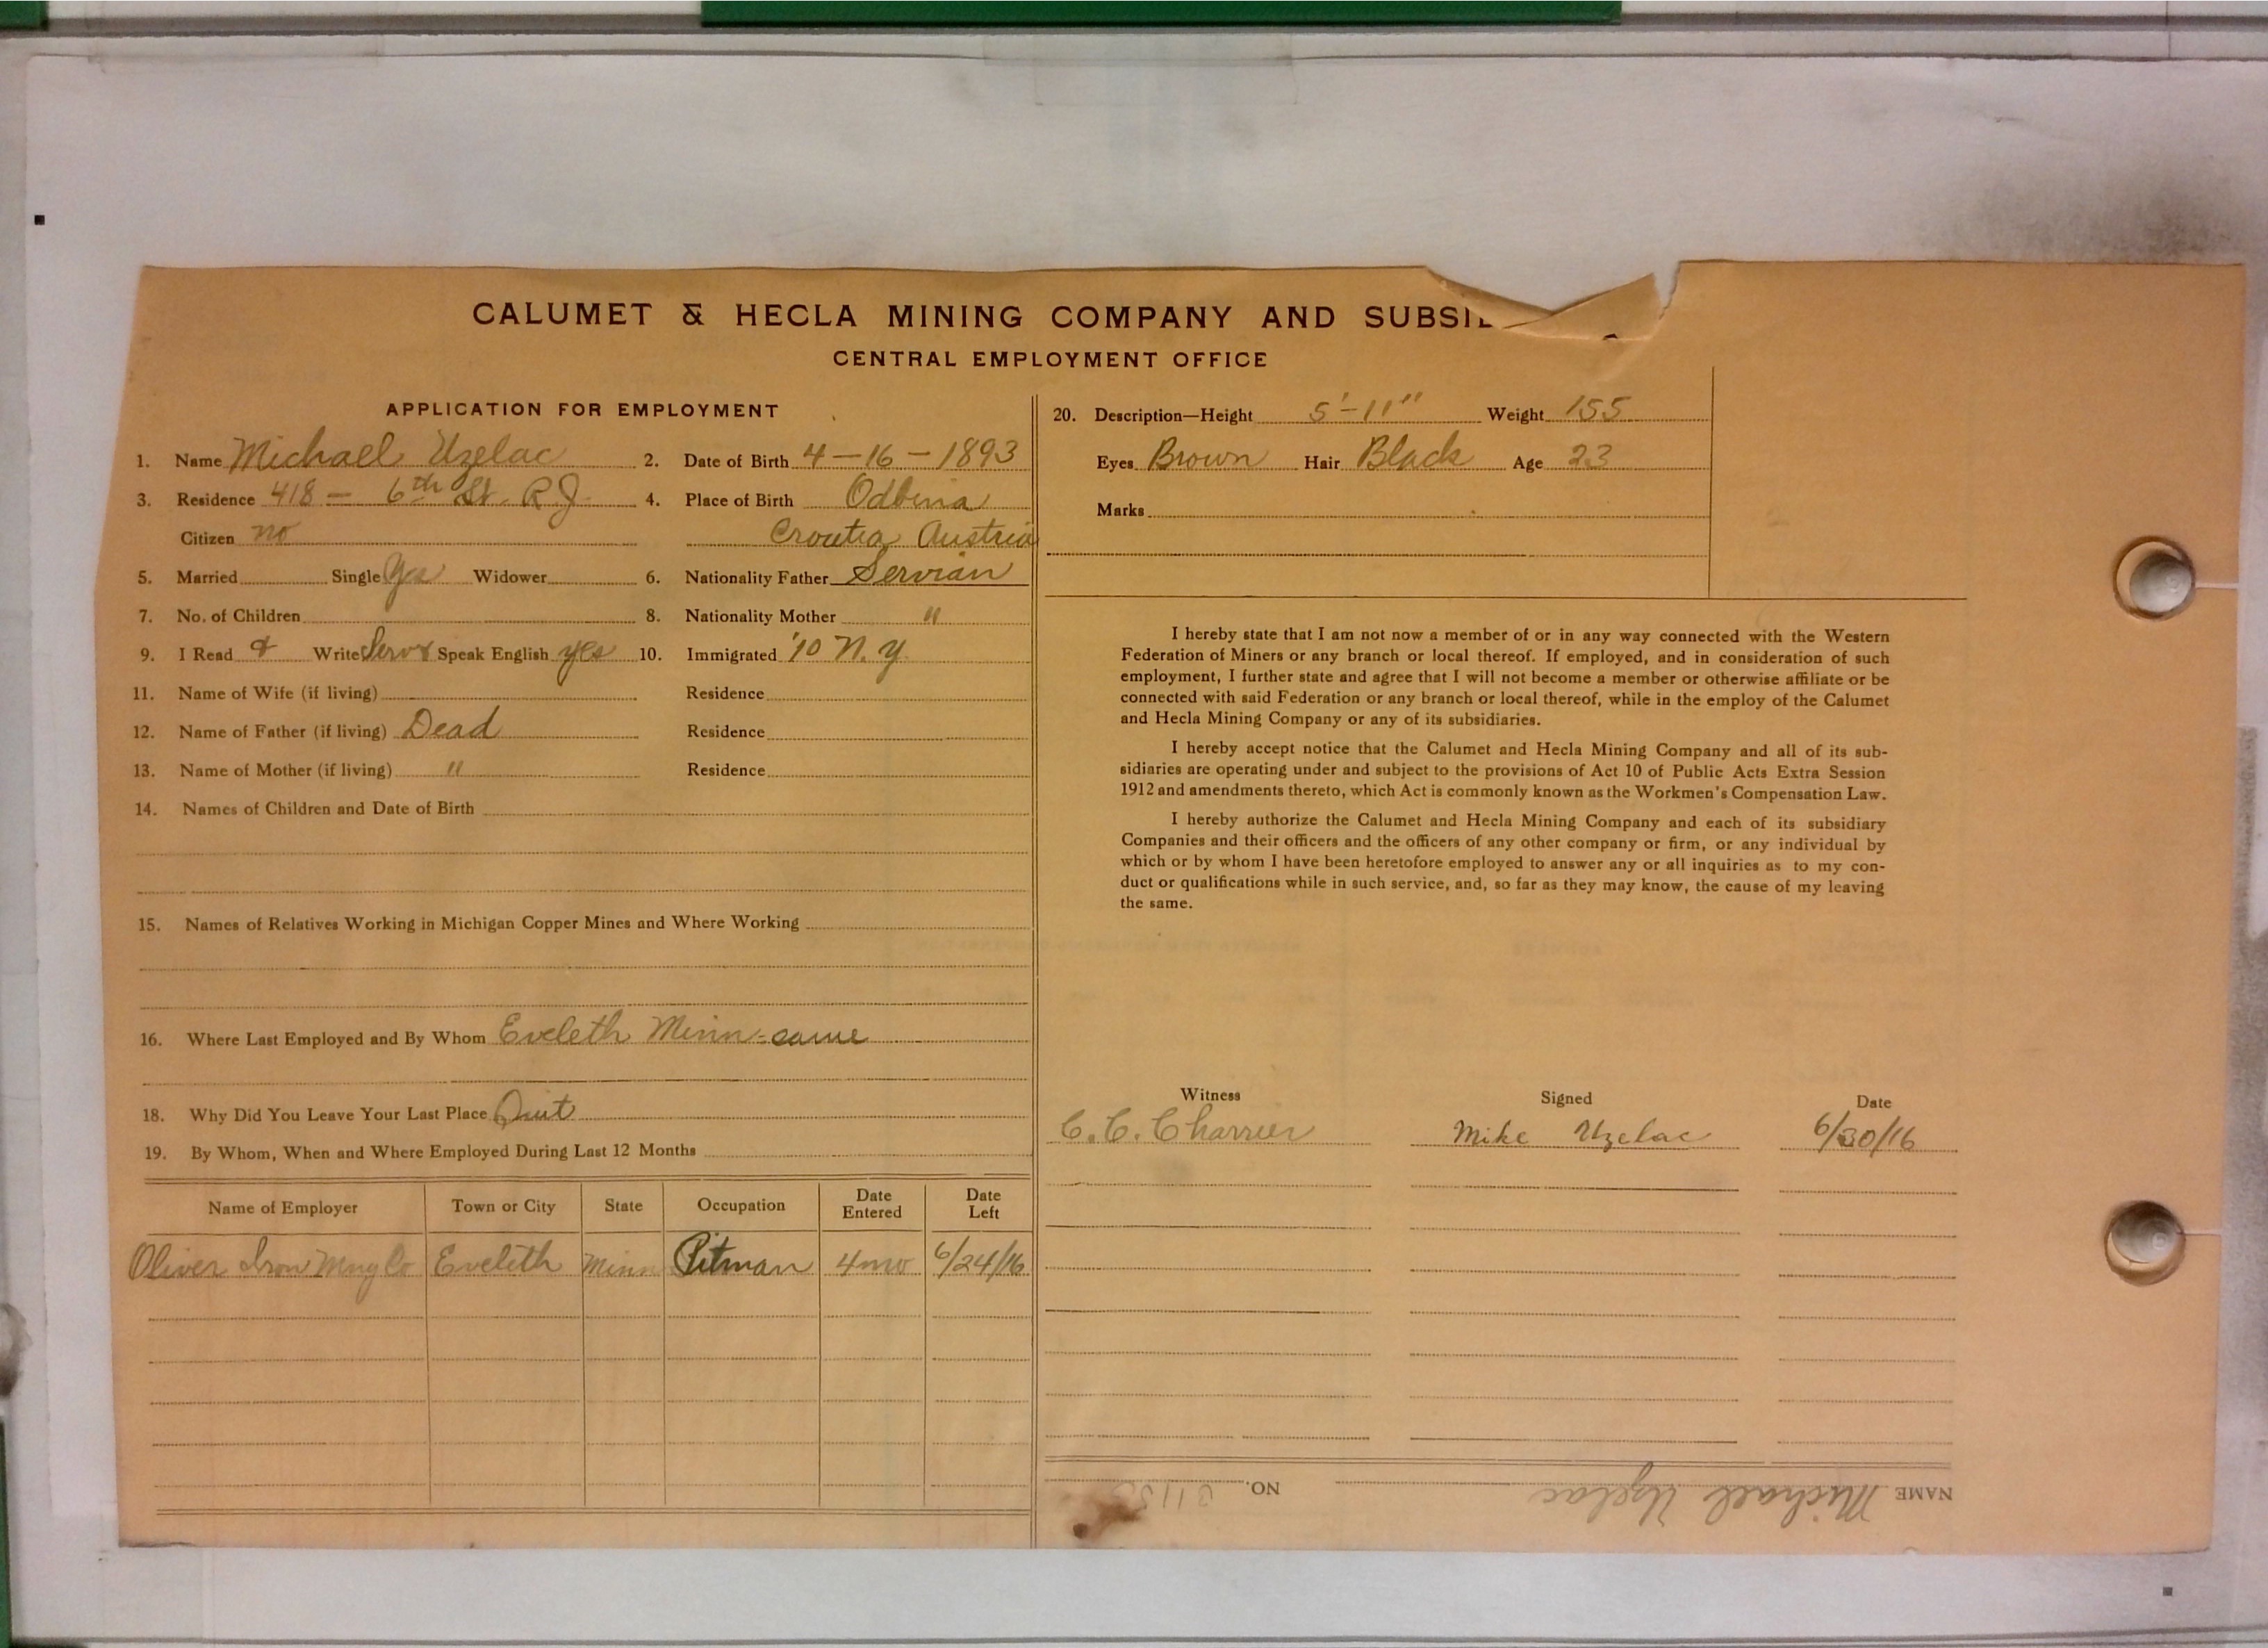 CALUMET & HECLA MINING COMPANY AND SUBSI
CENTRAL EMPLOYMENT OFFICE
APPLICATION FOR EMPLOYMENT
1. Name Michael Uzelac 2. Date of Birth 4-16-1893
3. Residence 418 - 6th St. R J 4. Place of Birth Odbina
Citizen no Croatia Austria
5. Married Single Yes Widower 6. Nationality Father Servian
7. No. of Children 8. Nationality Mother "
9. I Read & Write Serv & Speak English yes 10. Immigrated '10 N.Y.
11. Name of Wife (if living) Residence
12. Name of Father (if living) Dead Residence
13. Name of Mother (if living) " Residence
14. Names of Children and Date of Birth
15. Names of Relatives Working in Michigan Copper Mines and Where Working
16. Where Last Employed and By Whom Eveleth Minn - same
18. Why Did You Leave Your Last Place Quit
19. By Whom, When and Where Employed During Last 12 Months
Name of Employer Town or City State Occupation Date Entered Date Left
Oliver Iron Mng Co Eveleth Minn Pitman 4 mo 6/24/16
20. Description—Height 5'-11" Weight 155
Eyes Brown Hair Black Age 23
Marks
I hereby state that I am not now a member of or in any way connected with the Western
Federation of Miners or any branch or local thereof. If employed, and in consideration of such
employment, I further state and agree that I will not become a member or otherwise affiliate or be
connected with said Federation or any branch or local thereof, while in the employ of the Calumet
and Hecla Mining Company or any of its subsidiaries.
I hereby accept notice that the Calumet and Hecla Mining Company and all of its sub-
sidiaries are operating under and subject to the provisions of Act 10 of Public Acts Extra Session
1912 and amendments thereto, which Act is commonly known as the Workmen's Compensation Law.
I hereby authorize the Calumet and Hecla Mining Company and each of its subsidiary
Companies and their officers and the officers of any other company or firm, or any individual by
which or by whom I have been heretofore employed to answer any or all inquiries as to my con-
duct or qualifications while in such service, and, so far as they may know, the cause of my leaving
the same.
Witness Signed Date
C. C. Charrier Mike Uzelac 6/30/16
NAME Michael Uzelac NO.